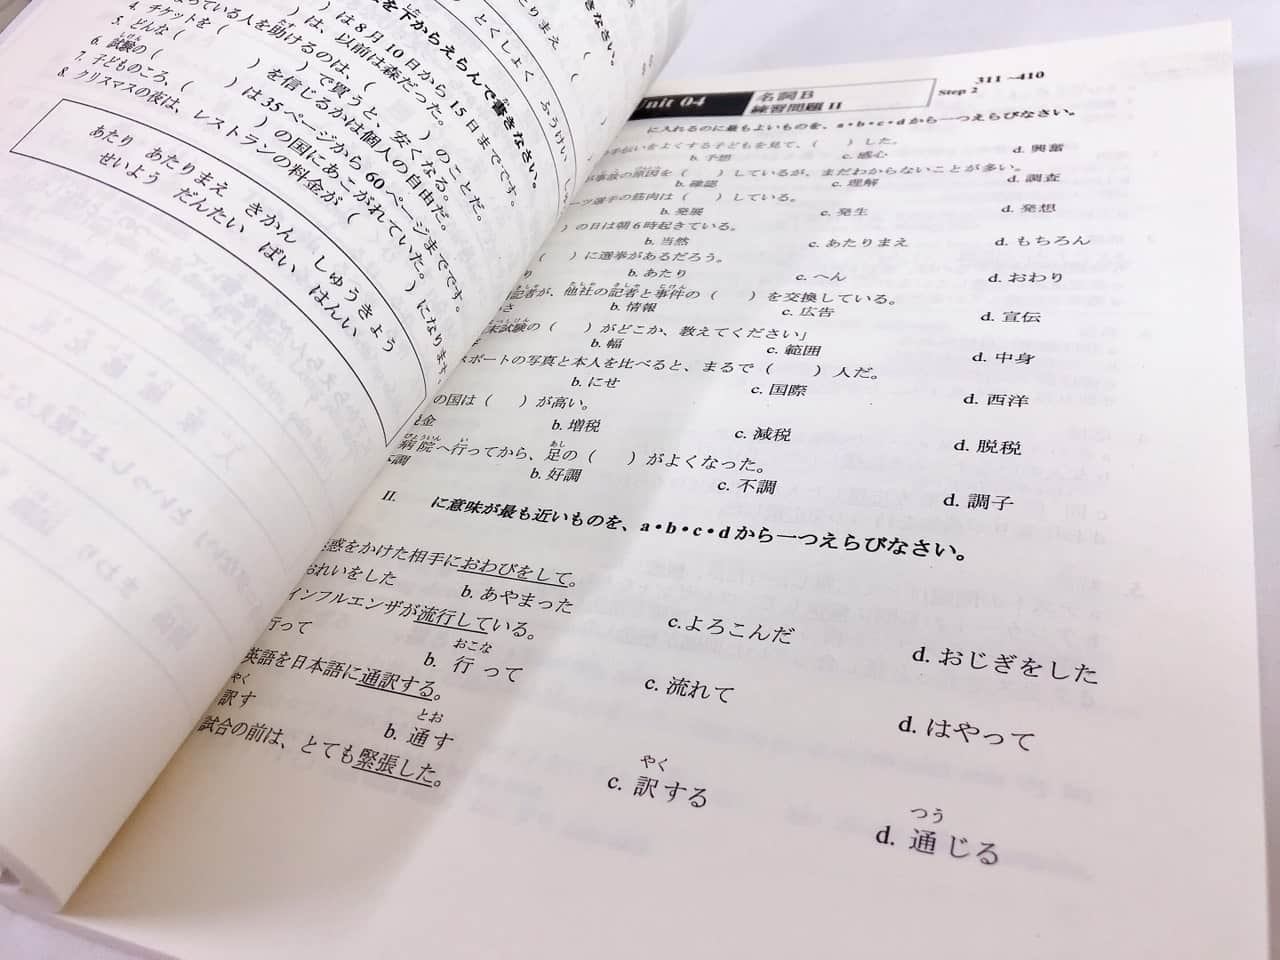 あたりまえ
とくしょく
ふうけい
を下からえらんで書きなさい。
）は8月10日から15日までです。
）は、以前は森だった。
っている人を助けるのは、（　　）のことだ。
4. チケットを（　　）で買うと、安くなる。
5. どんな（　　）を信じるかは個人の自由だ。
6. 試験の（　　）は35ページから60ページまでです。
7. 子どものころ、（　　）の国にあこがれていた。
8. クリスマスの夜は、レストランの料金が（　　）になります。
あたり　あたりまえ　きかん　しゅうきょう
せいよう　だんたい　ばい　はんい
Unit 04
名詞B
練習問題 II
Step 2
311～410
に入れるのに最もよいものを、a・b・c・dから一つえらびなさい。
手伝いをよくする子どもを見て、（　　）した。
b. 予想　c. 感心　d. 興奮
事故の原因を（　　）しているが、まだわからないことが多い。
b. 確認　c. 理解　d. 調査
ーツ選手の筋肉は（　　）している。
b. 発展　c. 発生　d. 発想
）の日は朝6時起きている。
b. 当然　c. あたりまえ　d. もちろん
（　　）に選挙があるだろう。
り　b. あたり　c. へん　d. おわり
記者が、他社の記者と事件の（　　）を交換している。
さ　b. 情報　c. 広告　d. 宣伝
末試験の（　　）がどこか、教えてください」
b. 幅　c. 範囲　d. 中身
スポートの写真と本人を比べると、まるで（　　）人だ。
b. にせ　c. 国際　d. 西洋
の国は（　　）が高い。
金　b. 増税　c. 減税　d. 脱税
病院へ行ってから、足の（　　）がよくなった。
調　b. 好調　c. 不調　d. 調子
II.　に意味が最も近いものを、a・b・c・dから一つえらびなさい。
惑をかけた相手におわびをして。
おれいをした　b. あやまった　c.よろこんだ　d. おじぎをした
インフルエンザが流行している。
行って　b. 行って　c. 流れて　d. はやって
英語を日本語に通訳する。
訳す　b. 通す　c. 訳する　d. 通じる
試合の前は、とても緊張した。